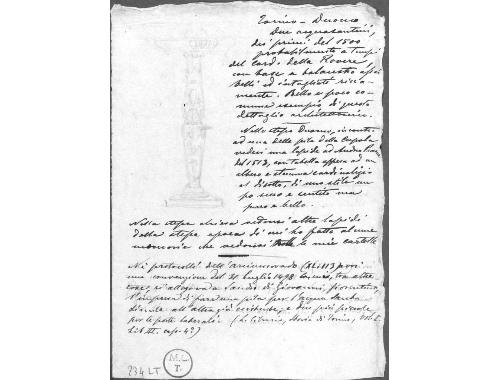 Torino - Duomo
Due acquasantini,
dei primi del 1500
probabilmente a tempi
del Card. della Rovere,
con base a balaustro assai
belli ed intagliati ricca-
mente. Bello e poco co-
mune esempio di questo
dettaglio architettonico.
Nello stesso Duomo, incontro
ad una delle pile della Cupola
vedesi una lapide ad
del 1513, con tabella appesa ad un
albero e stemma cardinalizio
al disotto, di uno stile un
po secco e ma
puro e bello.
Nella stessa chiesa vedonsi altre lapidi
della stessa epoca di cui ho fatto alcune
memorie che vedonsi nelle mie cartelle
Nei protocolli dell'arcivescovado
una convenzione del 21 luglio 1498 tra altre
cose, si allogava a Sandro di Giovanni, fiorentino,
l'impresa di fare una pila per l'acqua santa
simile all'altra già esistente, e due più piccole
per le porte laterali (L. Cibrario, Storia di Torino, Vol. II.
Lib. III. cap. 4º)
234 LT
M.C.
T.